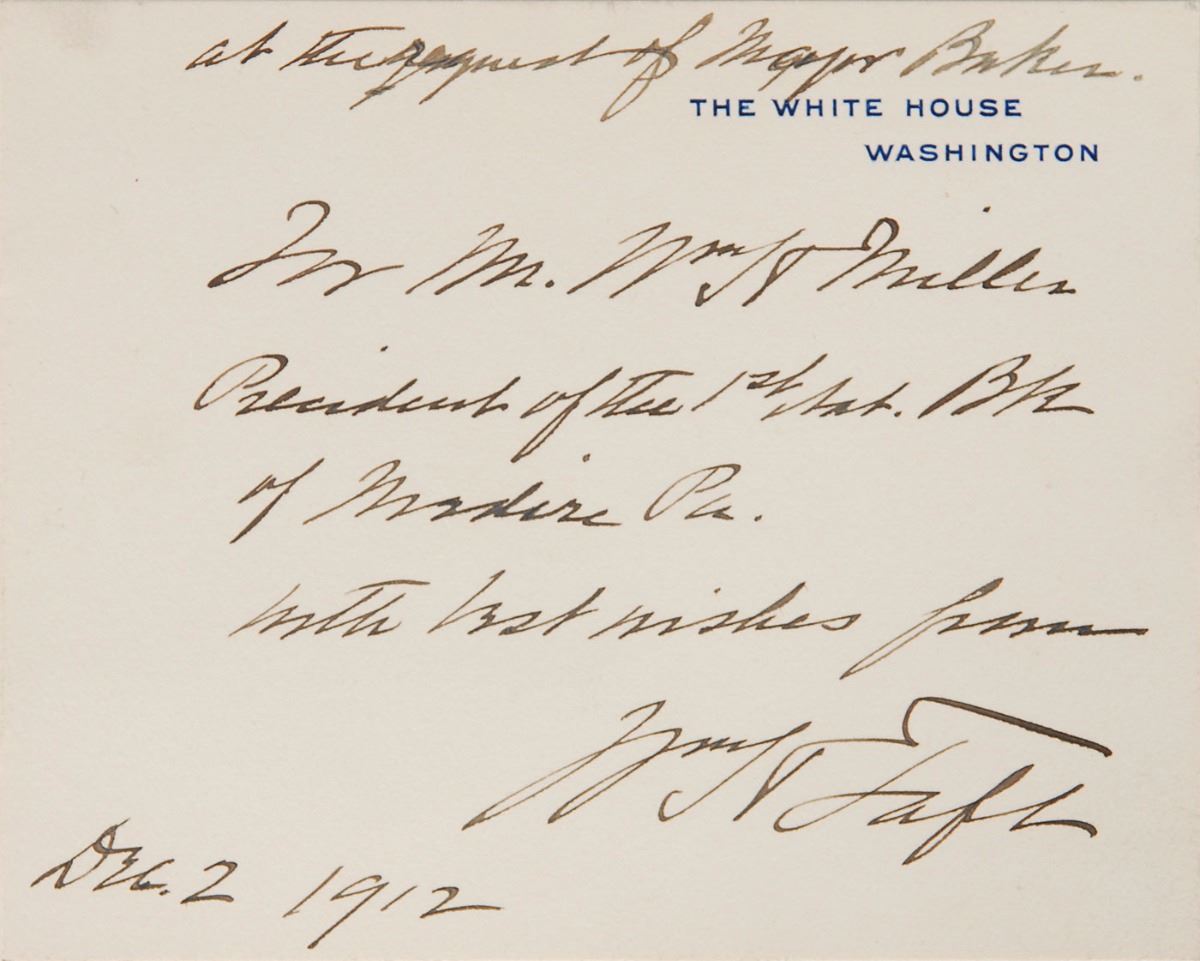 at the request of Major Baker.
THE WHITE HOUSE
WASHINGTON
For Mr. Wm H Miller
President of the 1st Nat. Bk
of Madire Pa.
with best wishes from
Wm H Taft
Dec. 2 1912